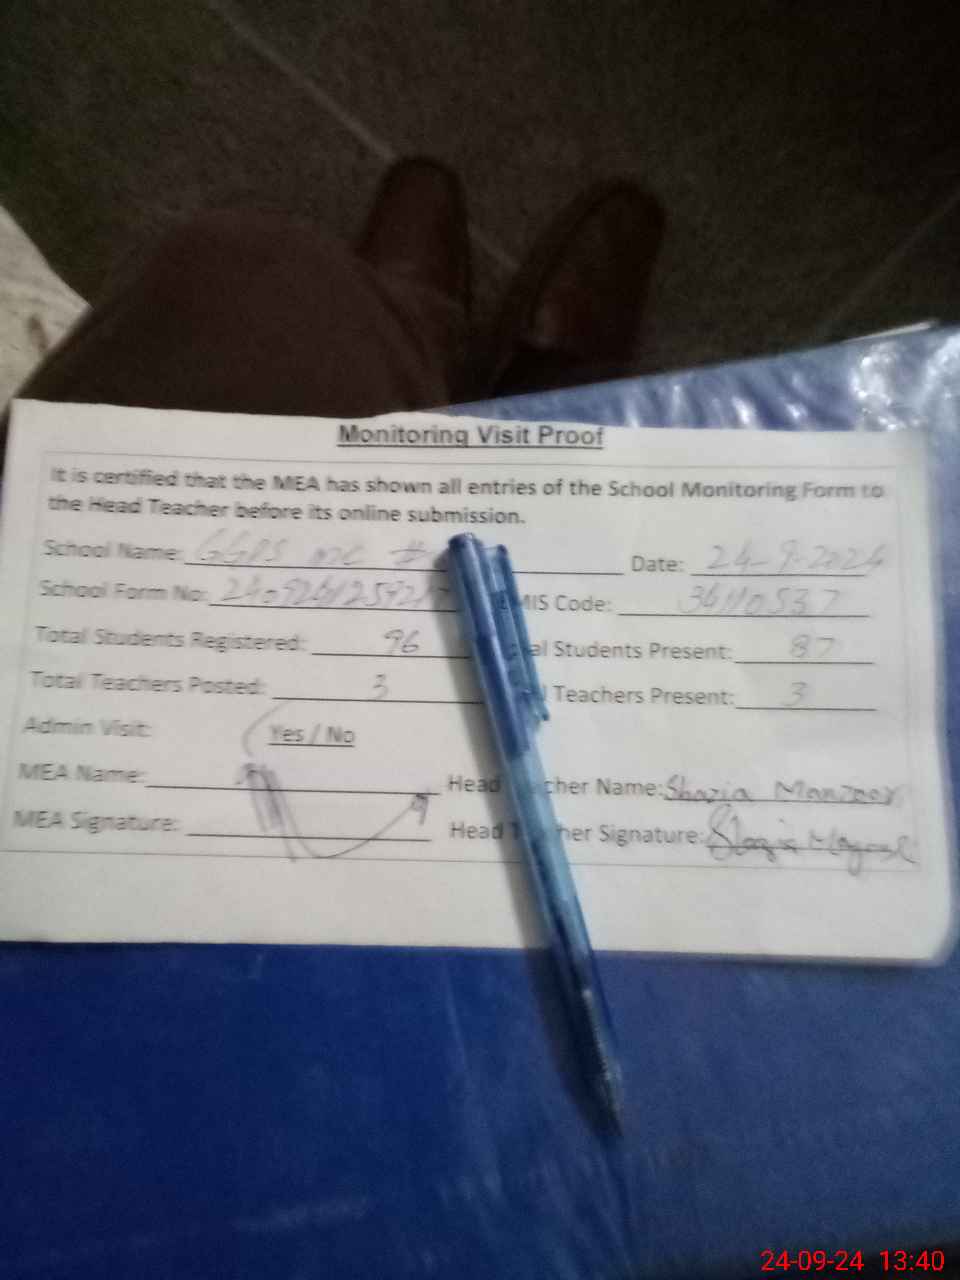 Monitoring Visit Proof
It is certified that the MEA has shown all entries of the School Monitoring Form to
the Head Teacher before its online submission.
School Name: GGPS MC # Date: 24-9-2024
School Form No: EMIS Code: 34110537
Total Students Registered: 96 Students Present: 87
Total Teachers Posted: 3 Teachers Present: 3
Admin Visit: Yes / No
MEA Name: Head Teacher Name: Shazia Manzoor
MEA Signature: Head Teacher Signature: Shazia
24-09-24 13:40